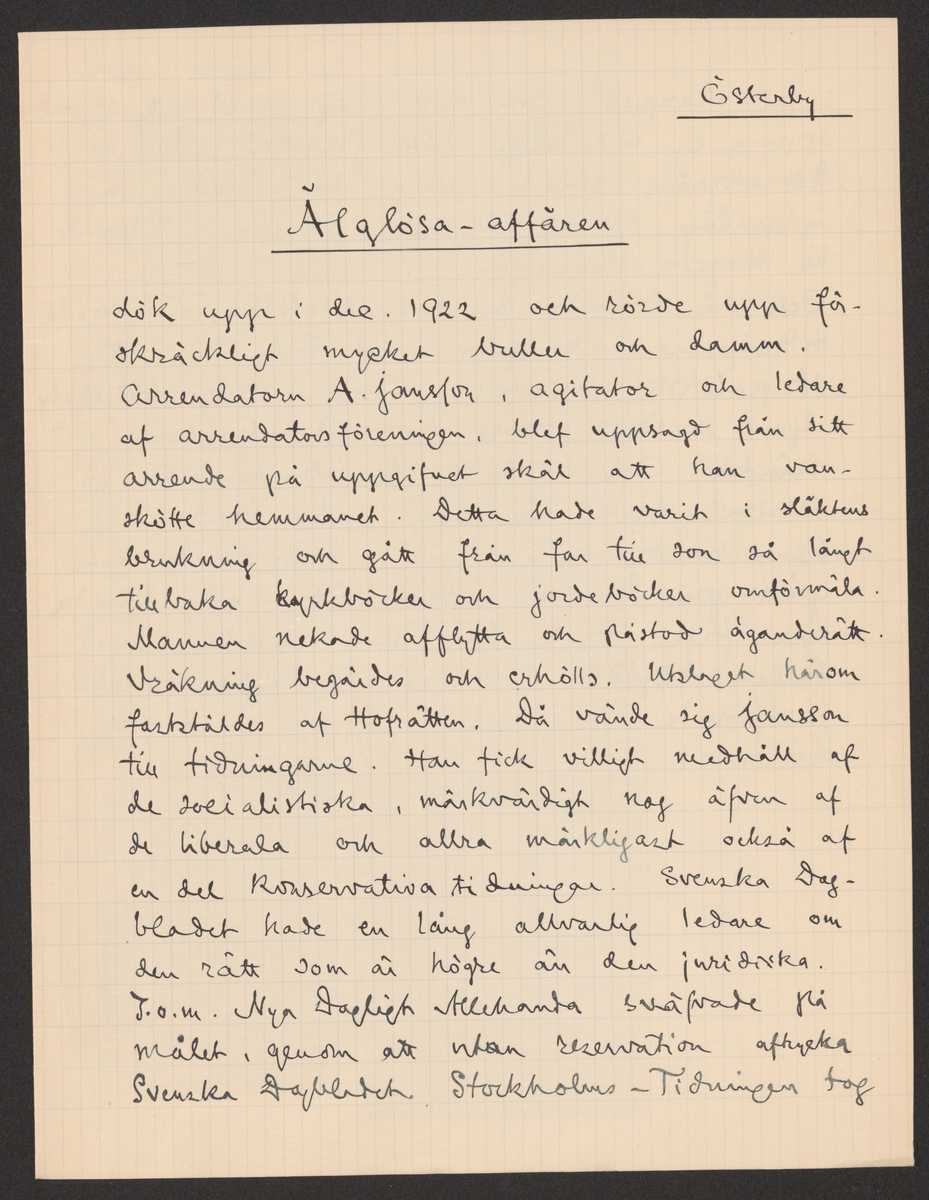 Österby
Älglösa-affären
dök upp i dec. 1922 och rörde upp för-
skräckligt mycket buller och damm.
Arrendatorn A. Jansson, agitator och ledare
af arrendatorsföreningen, blef uppsagd från sitt
arrende på uppgifvet skäl att han van-
skötte hemmanet. Detta hade varit i släktens
brukning och gått från far till son så långt
tillbaka kyrkböcker och jordeböcker omförmäla.
Mannen nekade afflytta och påstod äganderätt.
Vräkning begärdes och erhölls. Utslaget härom
fastställdes af Hofrätten. Då vände sig Jansson
till tidningarne. Han fick villigt medhåll af
de socialistiska, märkvärdigt nog äfven af
de liberala och allra märkligast också af
en del konservativa tidningar. Svenska Dag-
bladet hade en lång allvarlig ledare om
den rätt som är högre än den juridiska.
T.o.m. Nya Dagligt Allehanda sväfvade på
målet, genom att utan reservation aftrycka
Svenska Dagbladet. Stockholms-Tidningen tog